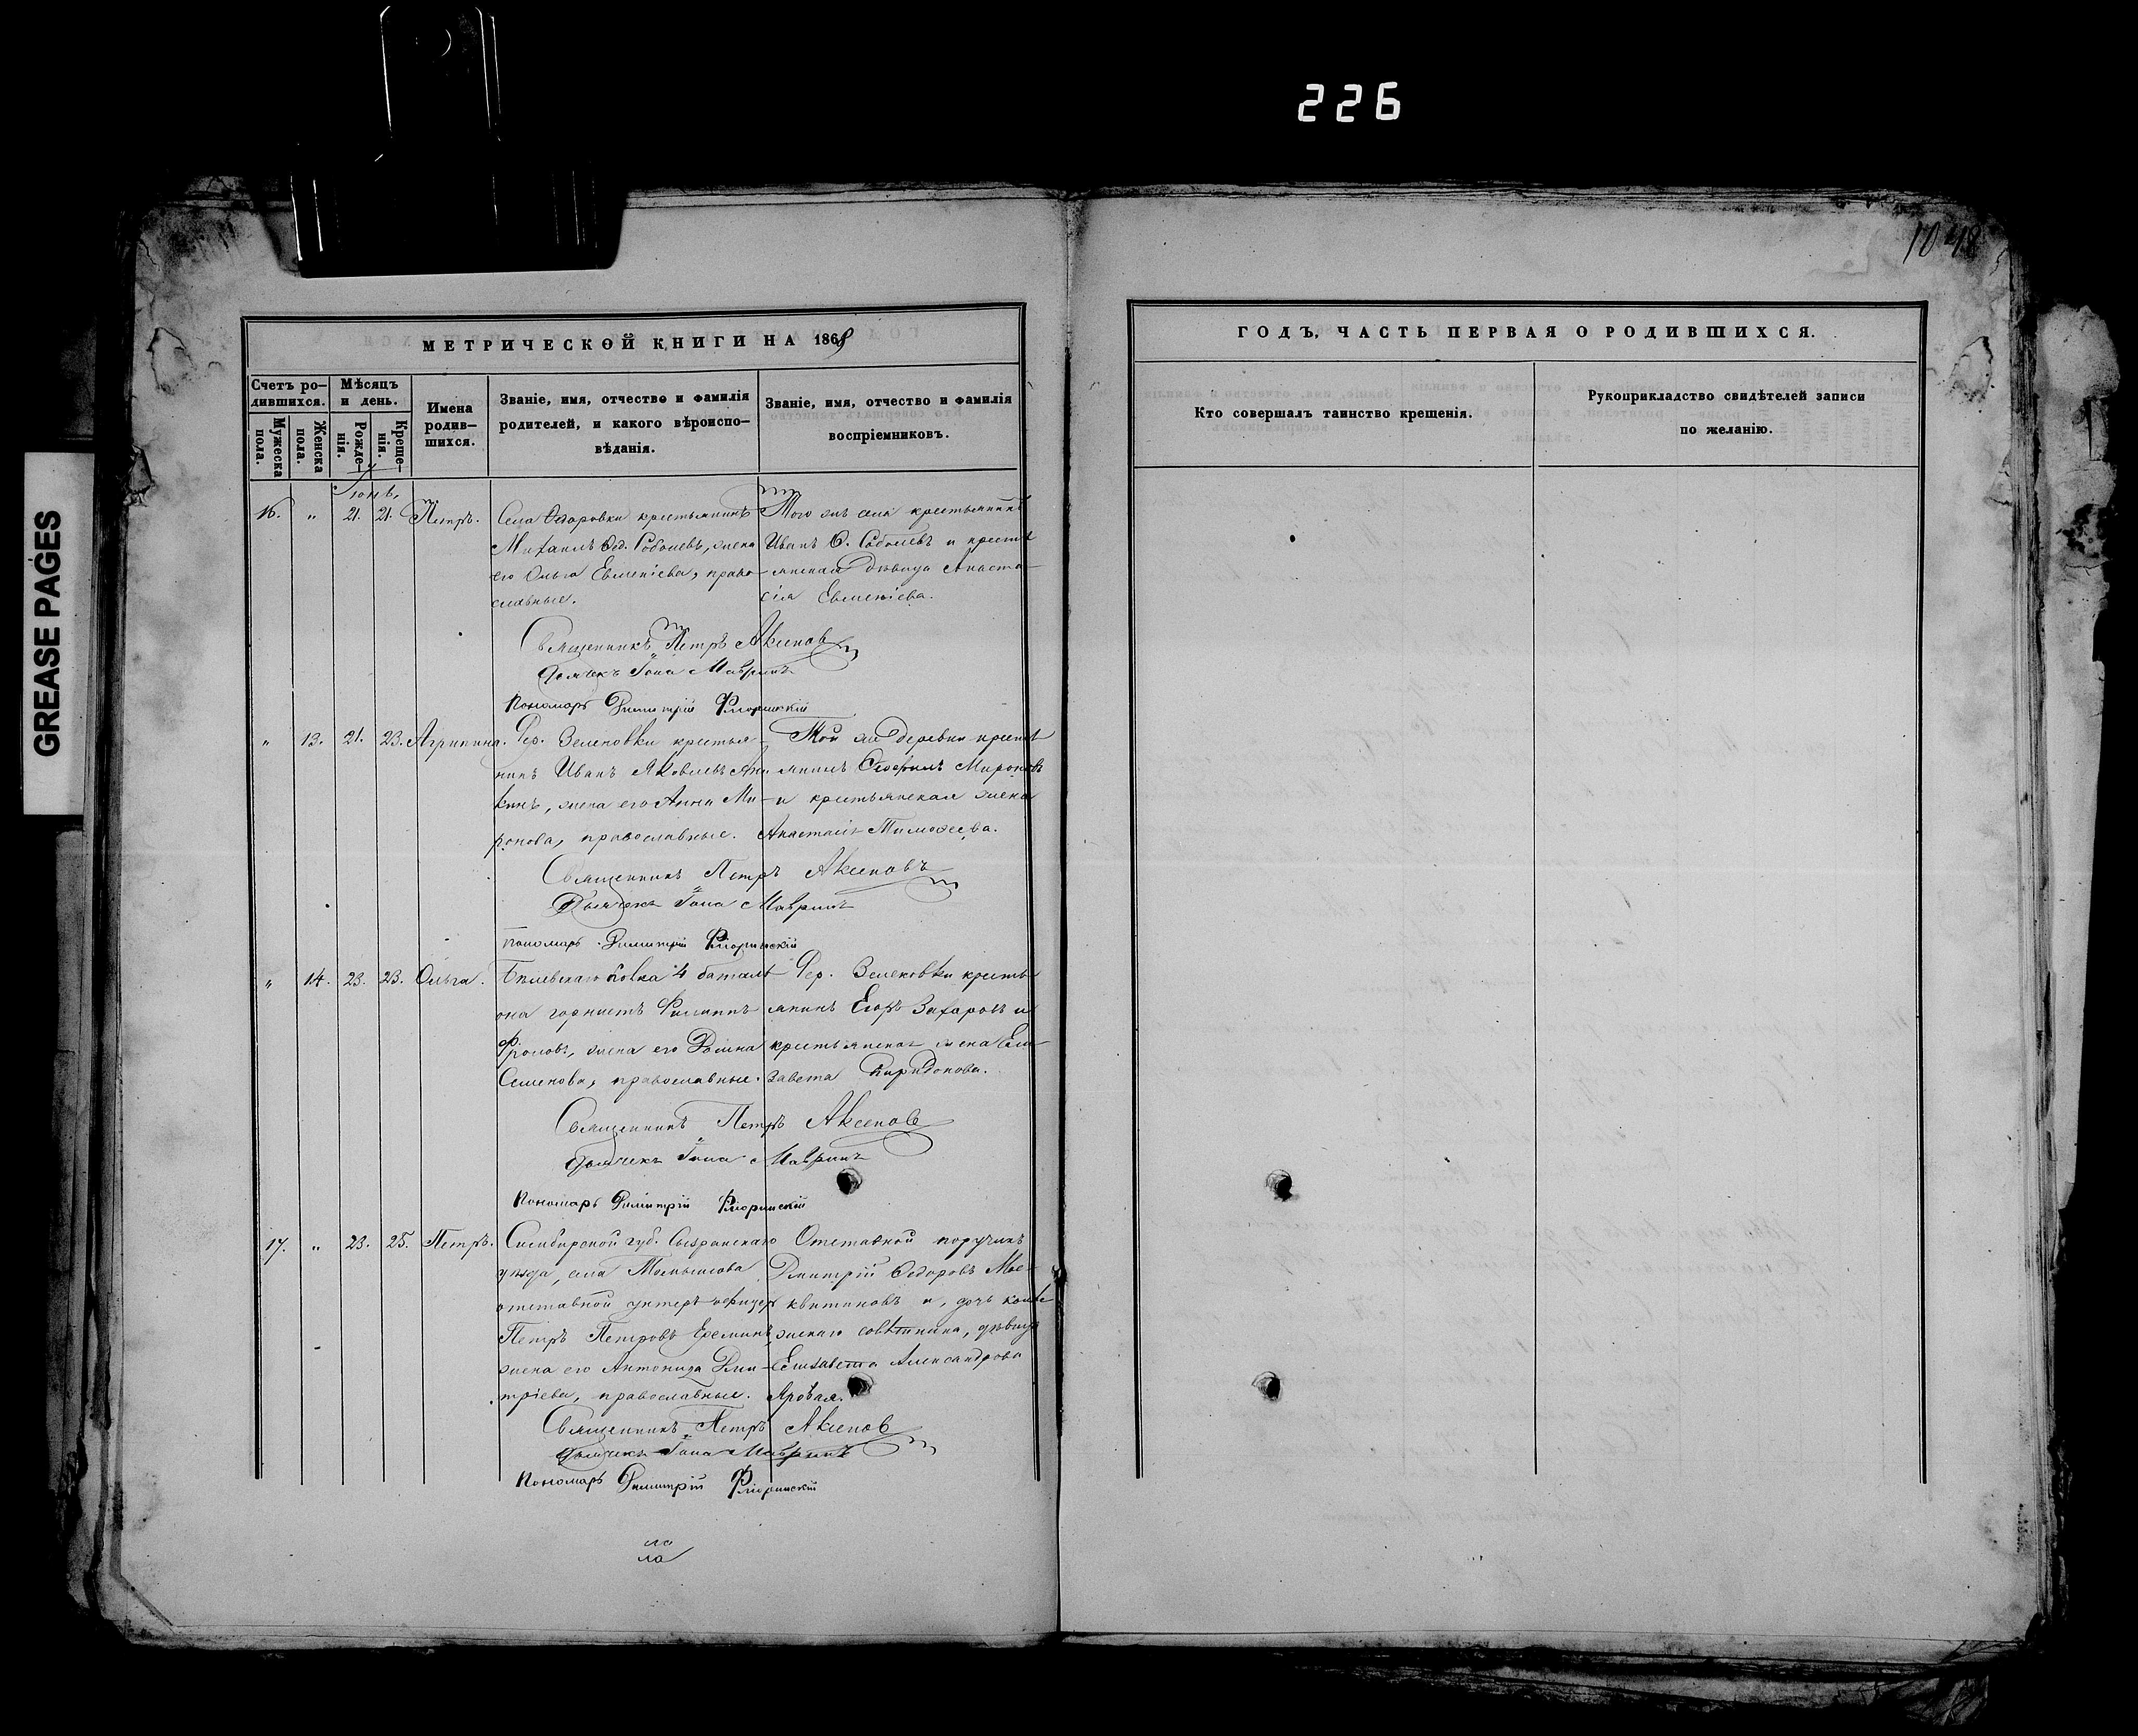 226
GREASE PAGES
1048
МЕТРИЧЕСКОЙ КНИГИ НА 1869
ГОДЪ, ЧАСТЬ ПЕРВАЯ О РОДИВШИХСЯ.
Счетъ ро-
дившихся.
Мужеска
пола.
Женска
пола.
Мѣсяцъ
и день.
Рожде-
нія.
Креще-
нія.
Имена
родив-
шихся.
Званіе, имя, отчество и фамилія
родителей, и какого вѣроиспо-
вѣданія.
Званіе, имя, отчество и фамилія
воспріемниковъ.
Кто совершалъ таинство крещенія.
Рукоприкладство свидѣтелей записи
по желанію.
Іюнь,
16. " 21. 21. Петръ.
Села крестьянинъ
Михаилъ Ѳед. Соболевъ, жена
его Ольга Евменіева, право-
славные.
Того же села крестьянинъ
Иванъ Ѳ. Соболевъ и кресть
янская дѣвица Анаста-
сія Евменіева.
Священникъ Петръ Аксенов
Дьячекъ Іона Мавринъ
Пономарь Димитрій Флоринскій
" 13. 21. 23. Агрипина.
Дер. Зеленовки крестья-
нинъ Иванъ Яковлевъ Ани
кинъ, жена его Анна Ми-
ронова, православные.
Той же деревни кресть
янинъ Мироновъ
и крестьянская жена
Анастасія Тимоѳеева.
Священникъ Петръ Аксеновъ
Дьячекъ Іона Мавринъ
Пономарь Димитрій Флоринскій
" 14. 23. 23. Ольга.
Бѣлевскаго полка 4 баталь
она горнистъ Филиппъ
Фроловъ, жена его Домна
Семенова, православные.
Дер. Зеленовки кресть
янинъ Егоръ Захаровъ и
крестьянская жена Ели-
завета Спиридонова.
Священникъ Петръ Аксенов
Дьячекъ Іона Мавринъ
Пономарь Димитрій Флоринскій
17. " 23. 25. Петръ.
Симбирской губ. Сызранскаго
уѣзда, села
отставной унтеръ-офицеръ
Петръ Петровъ Ереминъ,
жена его Антонида Дми-
тріева, православные.
Отставной поручикъ
Дмитрій Ѳедоровъ Мос-
квитиновъ и, дочь колле
жскаго совѣтника, дѣвица
Елизавета Александрова
Яровая.
Священникъ Петръ Аксенов
Дьячекъ Іона Мавринъ
Пономарь Димитрій Флоринскій